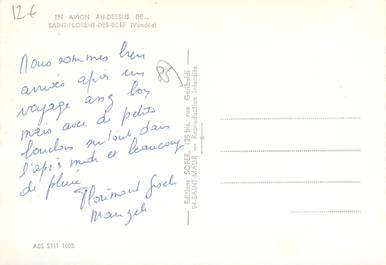 12€
EN AVION AU-DESSUS DE...
SAINT-FLORENT-DES-BOIS (Vendée)
Nous sommes bien
arrivés après un
voyage assez bon
mais avec de petits
bouchons surtout dans
l'après midi et beaucoup
de pluie
85
Editions SOFER, 125 bis, rue Garibaldi
94-SAINT-MAUR — Reproduction interdite
A85 5111 1003